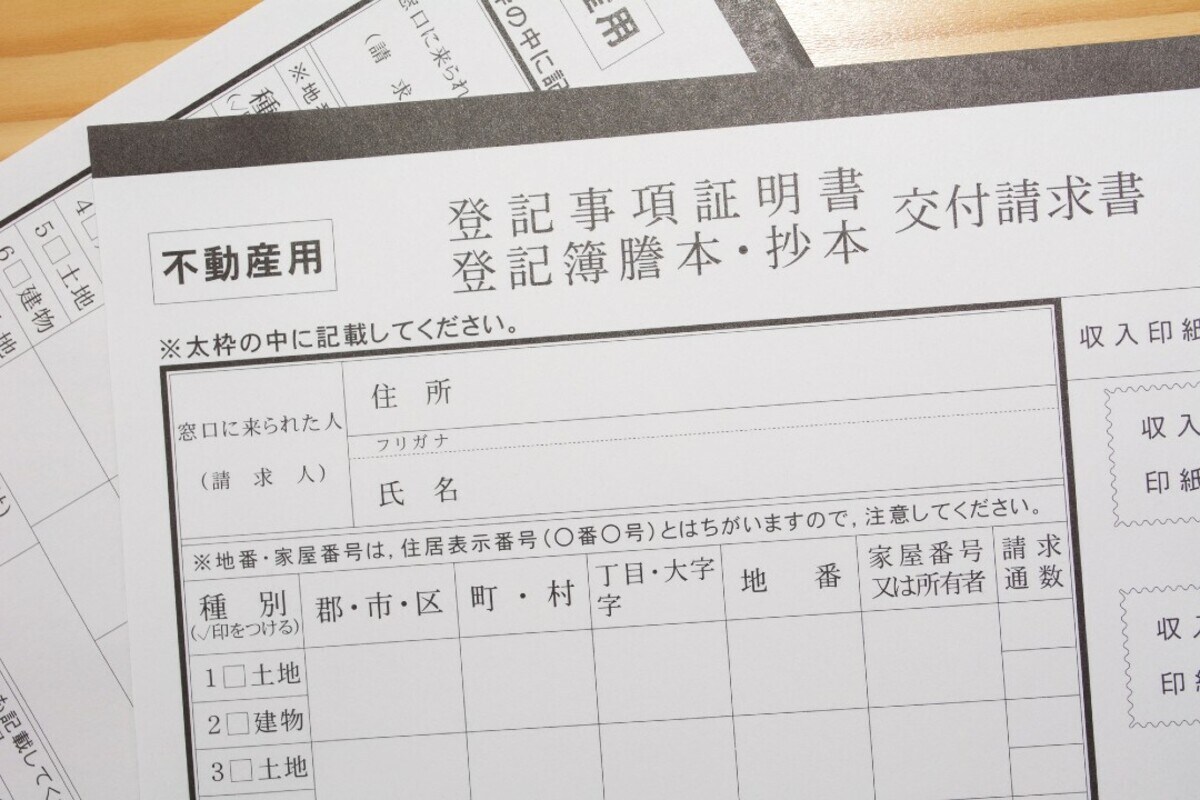 不動産用
登記事項証明書
登記簿謄本・抄本
交付請求書
※太枠の中に記載してください。
窓口に来られた人
(請求人)
住所
フリガナ
氏名
収入印紙
収入
印紙
※地番・家屋番号は,住居表示番号(〇番〇号)とはちがいますので,注意してください。
種別
(✓印をつける)
郡・市・区
町・村
丁目・大字
字
地番
家屋番号
又は所有者
請求
通数
1□土地
2□建物
3□土地
収入
印紙
産用
の中に記
窓口に来られ
(請求
※地番
種
4□
5□土地
6□建物
地
記載して